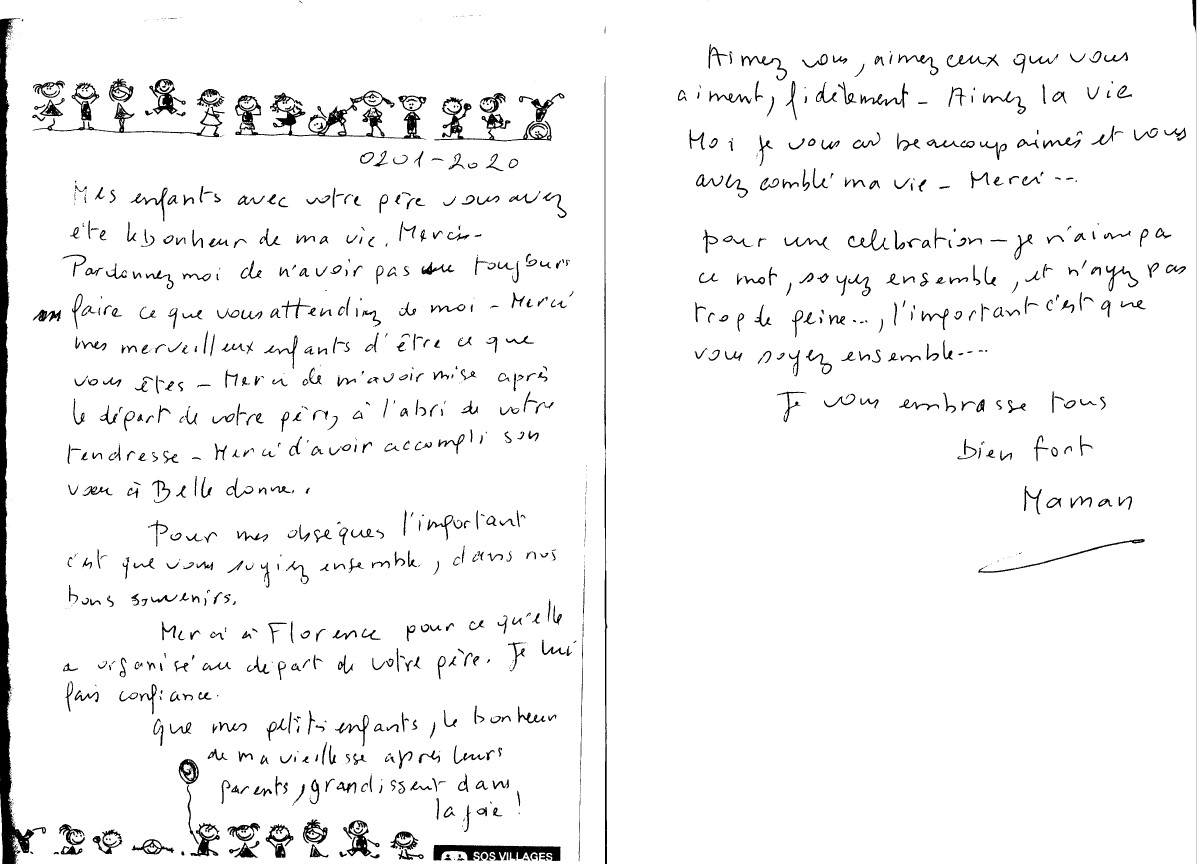 0201-2020
Mes enfants avec votre père vous avez
été le bonheur de ma vie. Merci-
Pardonnez moi de n'avoir pas su toujours
faire ce que vous attendiez de moi - Merci
mes merveilleux enfants d'être ce que
vous êtes - Merci de m'avoir mise après
le départ de votre père, à l'abri de votre
tendresse - Merci d'avoir accompli son
vœu à Belle donne..
Pour mes obsèques l'important
c'est que vous soyiez ensemble, dans nos
bons souvenirs.
Merci à Florence pour ce qu'elle
a organisé au départ de votre père. Je lui
fais confiance.
Que mes petits enfants, le bonheur
de ma vieillesse après leurs
parents, grandissent dans
la joie !
SOS VILLAGES
Aimez vous, aimez ceux qui vous
aiment, fidèlement - Aimez la vie
Moi je vous ai beaucoup aimés et vous
avez comblé ma vie - Merci...
pour une celebration - je n'aime pa
ce mot, soyez ensemble, et n'ayez pas
trop de peine..., l'important c'est que
vous soyez ensemble....
Je vous embrasse tous
bien fort
Maman